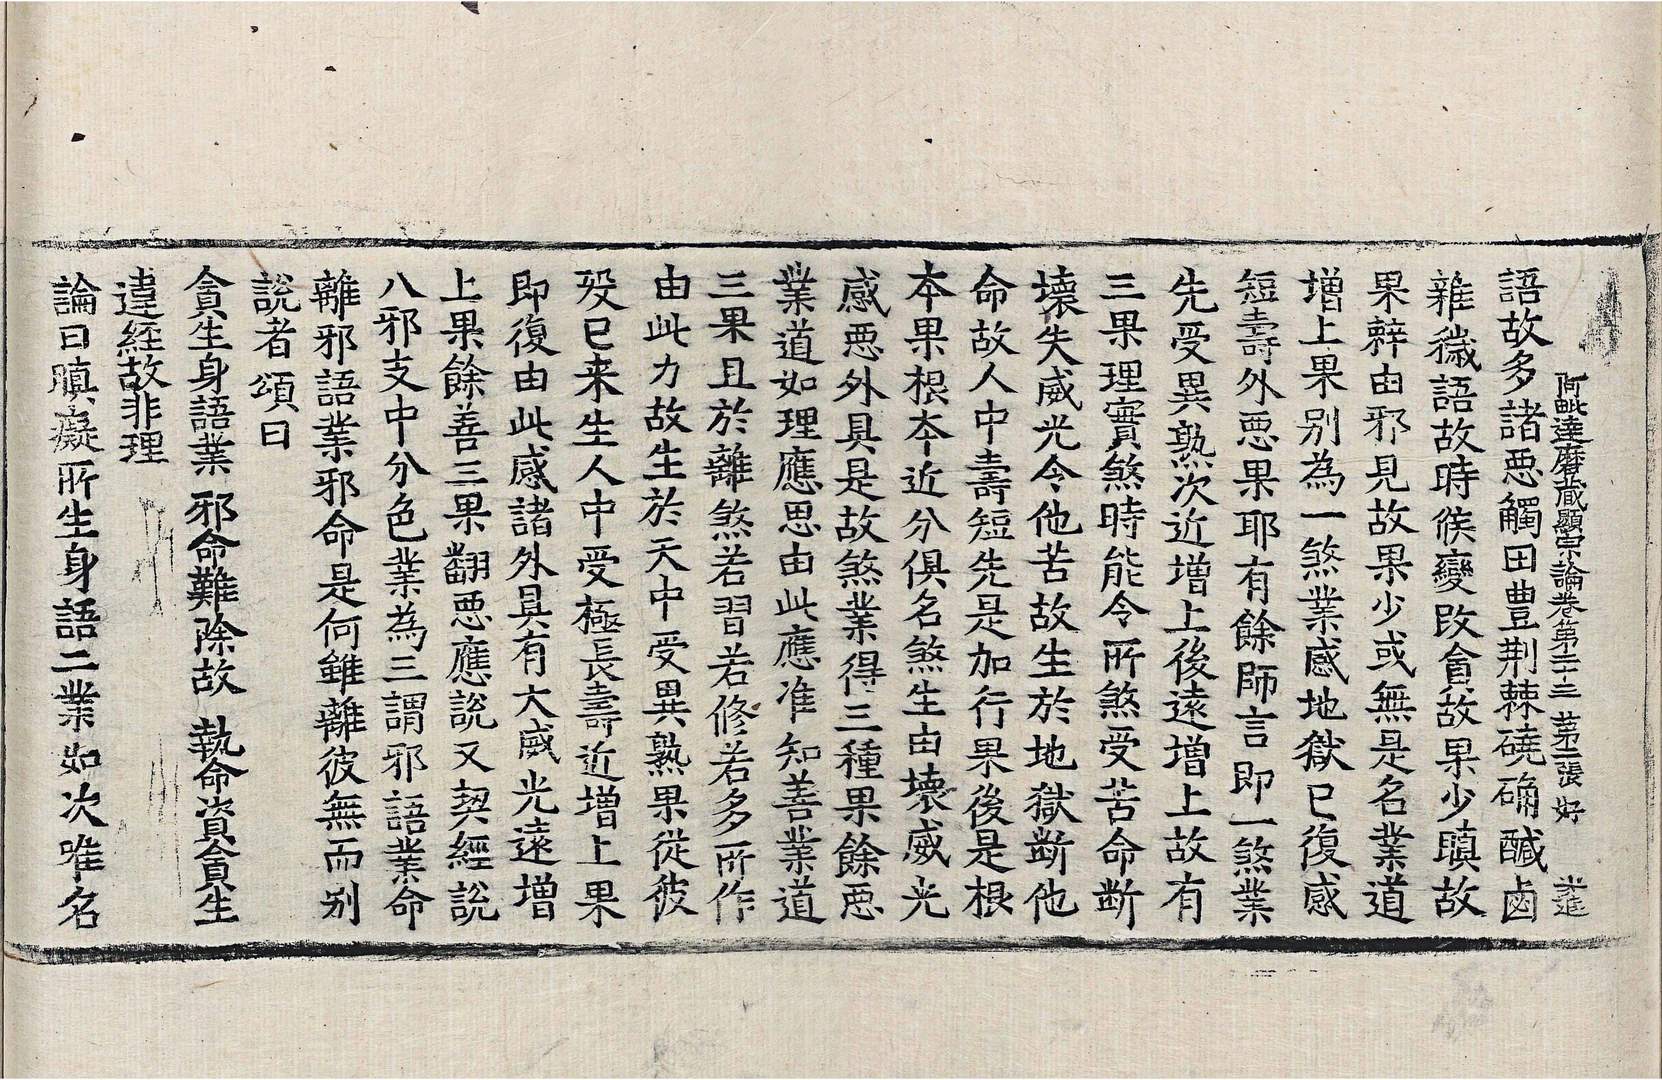 阿毗達磨蔵顯宗論卷第二十三 苐二張 好
語故多諸𢙣觸田豊荆棘磽确醎鹵
雜穢語故時候變改貪故果少瞋故
果辢由邪見故果少或無是名業道
増上果别為一煞業感地獄已復感
短壽外𢙣果耶有餘師言即一煞業
先受異熟次近增上後遠增上故有
三果理實煞時能令所煞受苦命断
壊失威光令他苦故生於地獄斷他
命故人中壽短先是加行果後是根
夲果根夲近分俱名煞生由壊威光
感𢙣外具是故煞業得三種果餘𢙣
業道如理應思由此應准知善業道
三果且於離煞若習若修若多所作
由此力故生於天中受異熟果従彼
歿已来生人中受極長壽近增上果
即復由此感諸外具有大威光遠增
上果餘善三果翻𢙣應說又契經說
八邪支中分色業為三謂邪語業命
離邪語業邪命是何雖離彼無而别
說者頌曰
貪生身語業 邪命難除故 執命資貪生
違経故非理
論曰瞋癡所生身語二業如次唯名